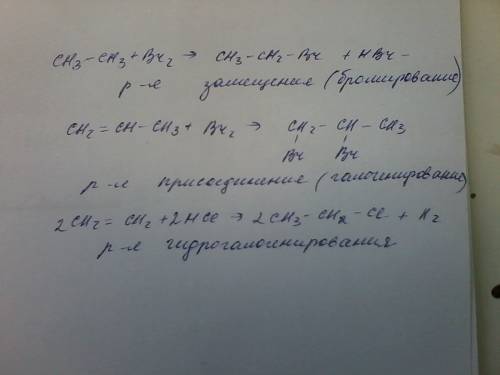 CH₃–CH₃ + Br₂ → CH₃–CH₂–Br + HBr –
р-е замещения (бромирование)
CH₂ = CH – CH₃ + Br₂ → CH₂ – CH – CH₃
Br Br
р-е присоединение (галогенирование)
2CH₂ = CH₂ + 2HCl → 2CH₃ – CH₂ – Cl + H₂
р-е гидрогалогенирования